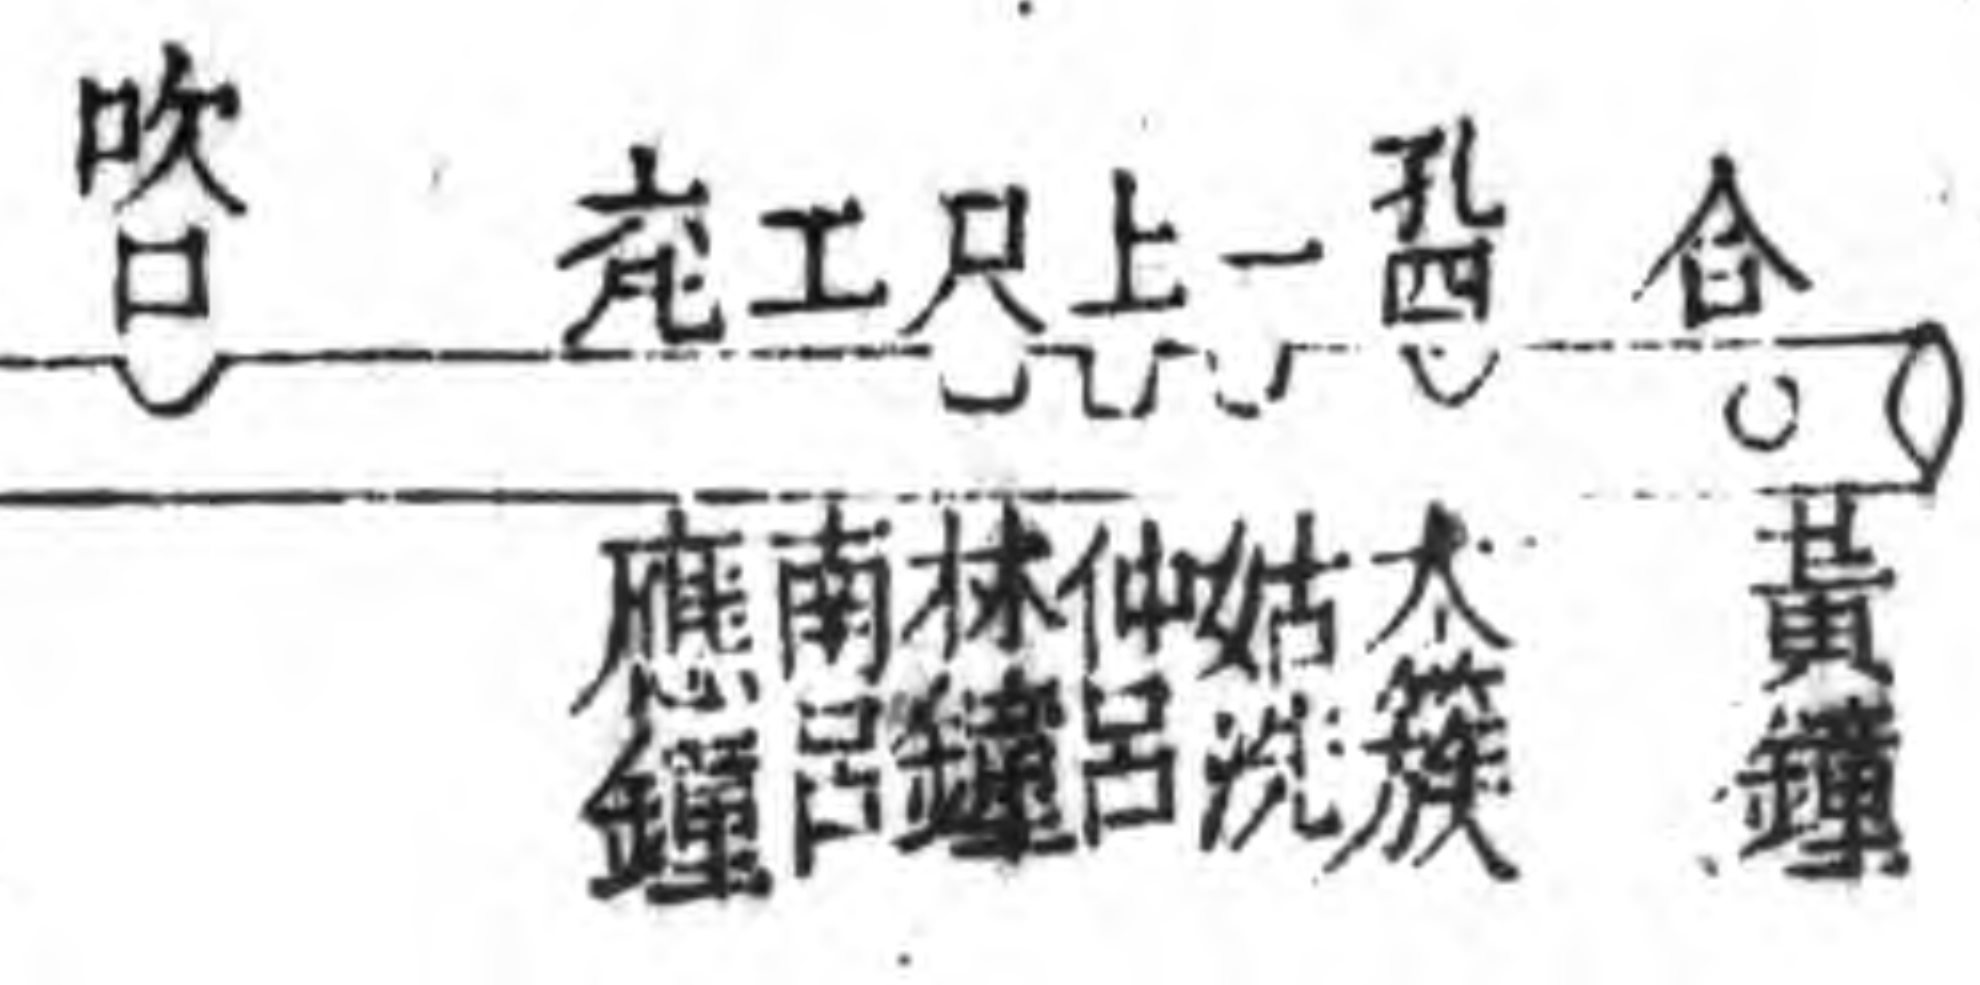 合
孔四
一
上
尺
工
吹口
黃鐘
太簇
姑洗
仲呂
林鐘
南呂
應鐘